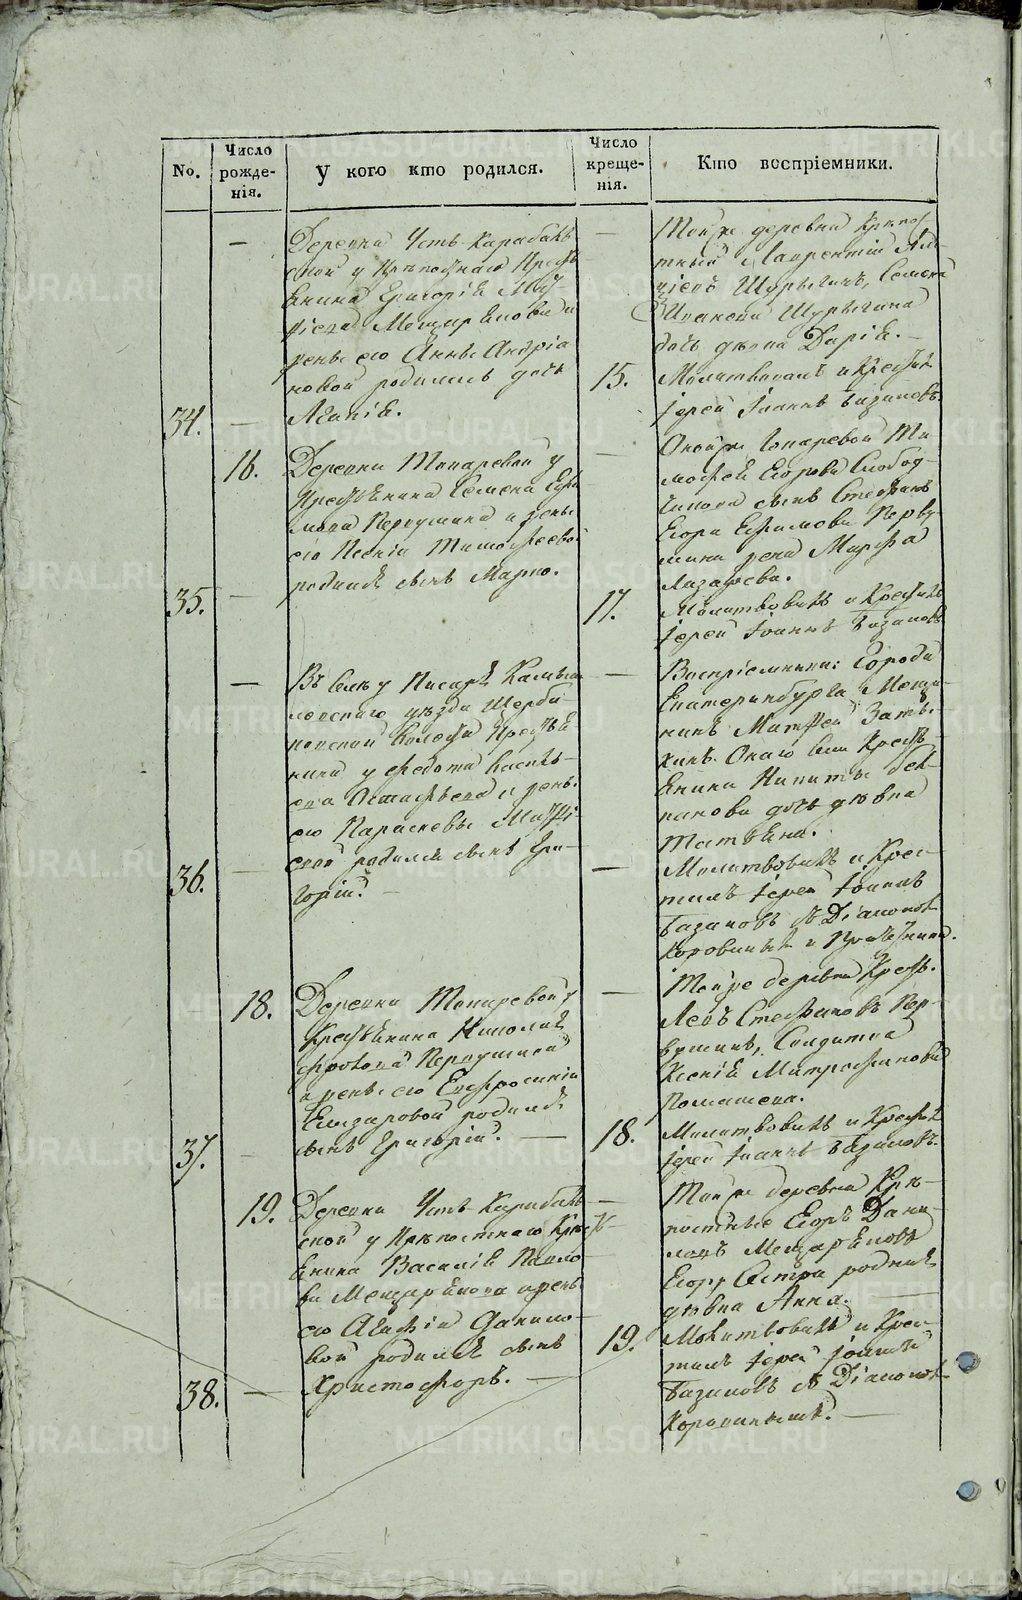 No.
Число рожде-
нія.
У кого кто родился.
Число креще-
нія.
Кто воспріемники.
—
Деревни Усть-Карабаш
ской у Крѣпостнаго Кресть
янина Григорія
Мещерякова и
жены его Анны Андріа
новой родилась дочь
34.
Агапія.
—
Той же деревни Крѣпос
тный Лаврентій
Шурыгинъ, Семена
Иванова Шурыгина
дочь дѣвка Дарія.
15.
Молитвовалъ и Крестилъ
Іерей Іоаннъ Базиловъ.
16.
Деревни Токаревой у
Крестьянина Семена Ефи
мова Первушина и жены
его Ксеніи Тимофеевой
родился сынъ Марко.
35.
—
Оной же Токаревой Ти
мофей Егоровъ Слобод
чикова сынъ Стефанъ
Егора Ефимова Перву
шина жена Марфа
Лазарева.
17.
Молитвовалъ и Крестилъ
Іерей Іоаннъ Базиловъ
—
Въ Селѣ у Писаря Камыш
ловскаго уѣзда Щерба
ковской Волости Крестья
нина у Федота Василь
ева Остафьева и жены
его Парасковьи
родился сынъ Гри
36.
горій.
—
Воспріемники: Города
Екатеринбурга Меща
нинъ Матфей
Онаго села Крест
янина Никиты
дочь дѣвка
Татьяна.
—
Молитвовалъ и Крес
тилъ Іерей Іоаннъ
Базиловъ съ Діакономъ
Коровинымъ и
18.
Деревни Токаревой у
Крестьянина Николая
Фролова Первушина
и жены его Евфросиніи
Елизаровой родился
37.
сынъ Григорій.
—
Той же деревни Крест.
Левъ Стефановъ Пер
вушинъ, Солдатка
Ксенія Митрофанова
18.
Молитвовалъ и Крестилъ
Іерей Іоаннъ Базиловъ.
19.
Деревни Усть-Карабаш
ской у Крѣпостнаго Крест
янина Василія Павло
ва Мещерякова и жены
его Агафіи Данило
вой родился сынъ
38.
Христофоръ.
—
Той же деревни Крѣ
постные Егоръ Дани
ловъ Мещеряковъ
Егору Сестра родная
дѣвка Анна.
19.
Молитвовалъ и Крес
тилъ Іерей Іоаннъ
Базиловъ съ Діакономъ
Коровинымъ.